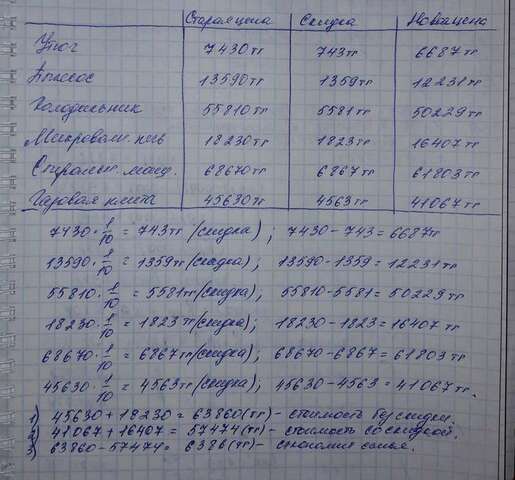 Старая цена Скидка Новая цена
Утюг 7430тг 743тг 6687тг
Пылесос 13590тг 1359тг 12231тг
Холодильник 55810тг 5581тг 50229тг
Микроволн. печь 18230тг 1823тг 16407тг
Стиральн. маш. 68670тг 6867тг 61803тг
Газовая плита 45630тг 4563тг 41067тг
7430 · 1/10 = 743тг (скидка); 7430 - 743 = 6687тг
13590 · 1/10 = 1359тг (скидка); 13590 - 1359 = 12231тг
55810 · 1/10 = 5581тг (скидка); 55810 - 5581 = 50229тг
18230 · 1/10 = 1823тг (скидка); 18230 - 1823 = 16407тг
68670 · 1/10 = 6867тг (скидка); 68670 - 6867 = 61803тг
45630 · 1/10 = 4563тг (скидка); 45630 - 4563 = 41067тг.
1) 45630 + 18230 = 63860 (тг) - стоимость без скидки.
2) 41067 + 16407 = 57474 (тг) - стоимость со скидкой.
3) 63860 - 57474 = 6386 (тг) - экономия семья.